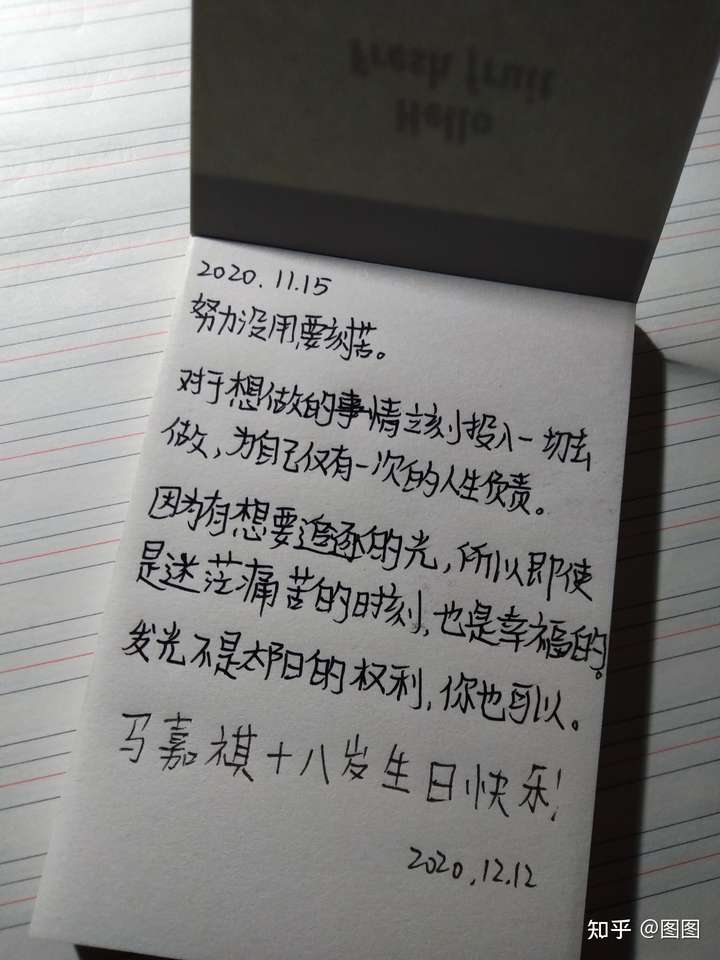 Hello
Fresh fruit
2020.11.15
努力没用,要刻苦。
对于想做的事情立刻投入一切去
做，为自己仅有一次的人生负责。
因为有想要追逐的光，所以即使
是迷茫痛苦的时刻,也是幸福的。
发光不是太阳的权利,你也可以。
马嘉祺十八岁生日快乐!
2020.12.12
知乎 @图图